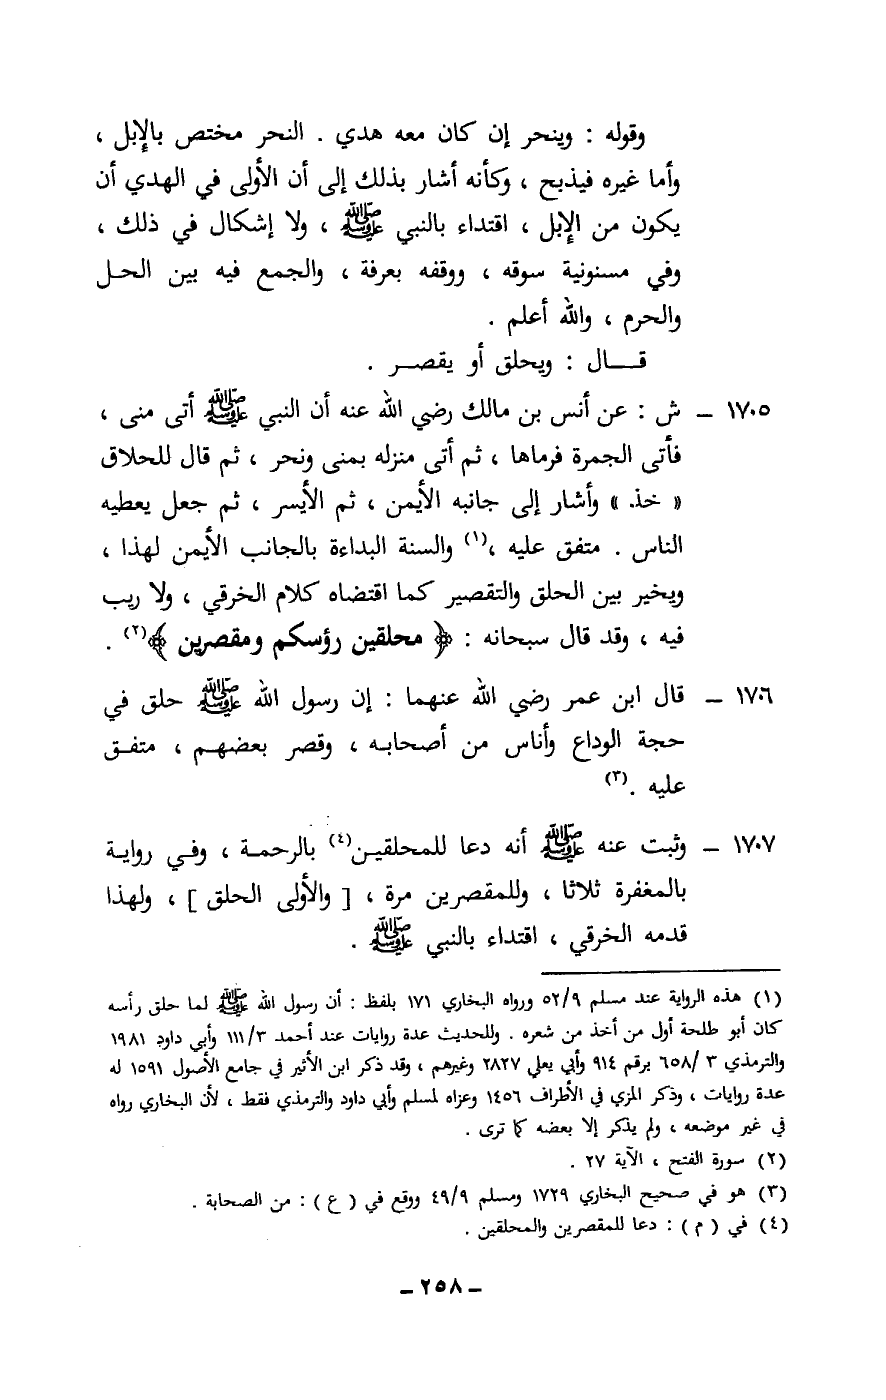 وقوله : وينحر إن كان معه هدي . النحر مختص بالإبل ،
وأما غيره فيذبح ، وكأنه أشار بذلك إلى أن الأولى في الهدي أن
يكون من الإبل ، اقتداء بالنبي ﷺ ، ولا إشكال في ذلك ،
وفي مسنونية سوقه ، ووقفه بعرفة ، والجمع فيه بين الحل
والحرم ، والله أعلم .
قـــال : ويحلق أو يقصـــر .
١٧٠٥ – ش : عن أنس بن مالك رضي الله عنه أن النبي ﷺ أتى منى ،
فأتى الجمرة فرماها ، ثم أتى منزله بمنى ونحر ، ثم قال للحلاق
« خذ. » وأشار إلى جانبه الأيمن ، ثم الأيسر ، ثم جعل يعطيه
الناس . متفق عليه ،(١) والسنة البداءة بالجانب الأيمن لهذا ،
ويخير بين الحلق والتقصير كما اقتضاه كلام الخرقي ، ولا ريب
فيه ، وقد قال سبحانه : ﴿ محلقين رؤسكم ومقصرين ﴾(٢) .
١٧٠٦ – قال ابن عمر رضي الله عنهما : إن رسول الله ﷺ حلق في
حجة الوداع وأناس من أصحابـه ، وقصر بعضهـم ، متفـق
عليه .(٣)
١٧٠٧ – وثبت عنه ﷺ أنه دعا للمحلقيـن(٤) بالرحمـة ، وفـي روايـة
بالمغفرة ثلاثا ، وللمقصرين مرة ، [ والأولى الحلق ] ، ولهذا
قدمه الخرقي ، اقتداء بالنبي ﷺ .
(١) هذه الرواية عند مسلم ٥٢/٩ ورواه البخاري ١٧١ بلفظ : أن رسول الله ﷺ لما حلق رأسه
كان أبو طلحة أول من أخذ من شعره . وللحديث عدة روايات عند أحمد ١١١/٣ وأبي داود ١٩٨١
والترمذي ٣ /٦٥٨ برقم ٩١٤ وأبي يعلي ٢٨٢٧ وغيرهم ، وقد ذكر ابن الأثير في جامع الأصول ١٥٩١ له
عدة روايات ، وذكر المزي في الأطراف ١٤٥٦ وعزاه لمسلم وأبي داود والترمذي فقط ، لأن البخاري رواه
في غير موضعه ، ولم يذكر إلا بعضه كما ترى .
(٢) سورة الفتح ، الآية ٢٧ .
(٣) هو في صحيح البخاري ١٧٢٩ ومسلم ٤٩/٩ ووقع في ( ع ) : من الصحابة .
(٤) في ( م ) : دعا للمقصرين والمحلقين .
– ٢٥٨ –